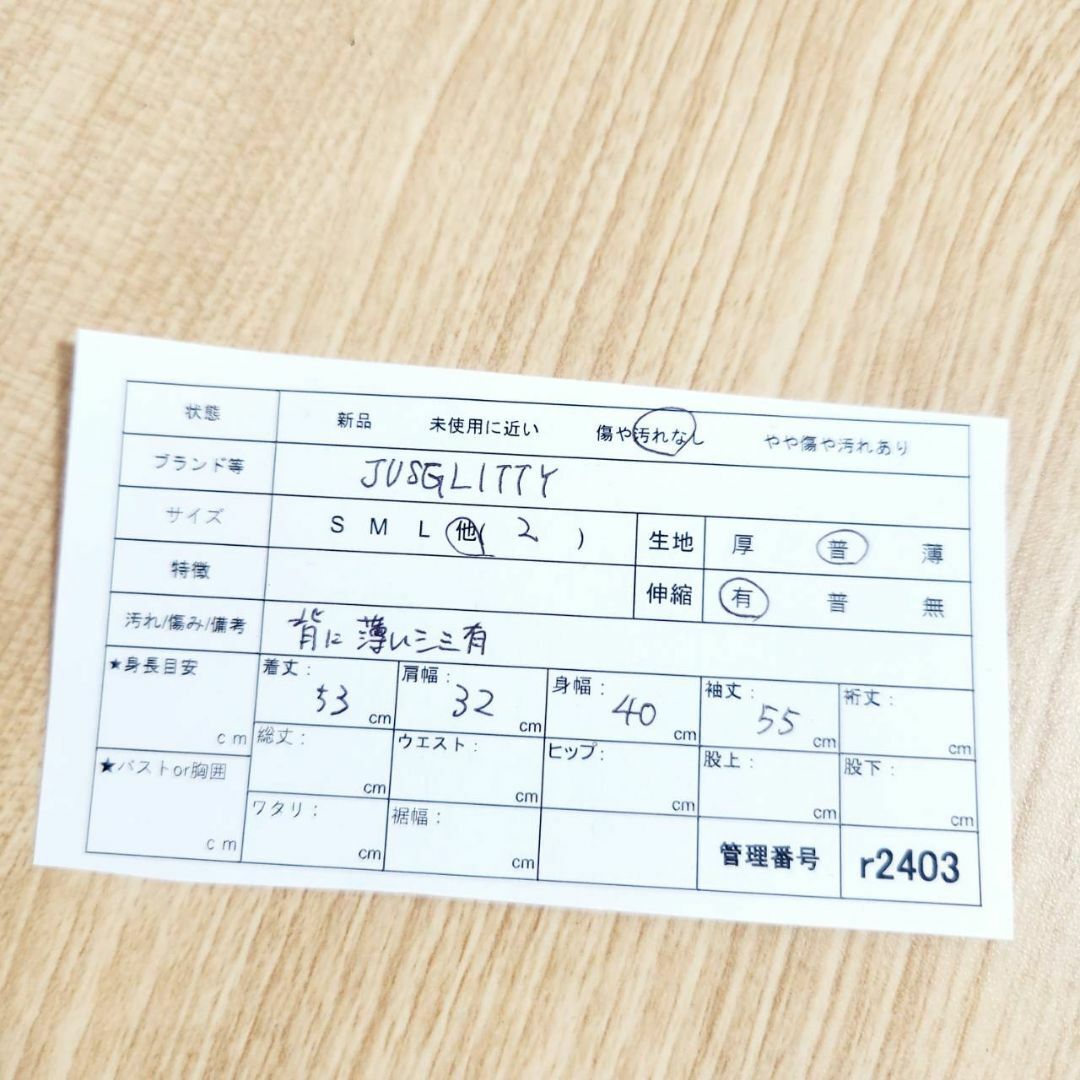 状態 新品 未使用に近い 傷や汚れなし やや傷や汚れあり
ブランド等 JUSGLITTY
サイズ S M L 他( 2 ) 生地 厚 普 薄
特徴 伸縮 有 普 無
汚れ/傷み/備考 背に薄いシミ有
★身長目安 cm 着丈: 53 cm 肩幅: 32 cm 身幅: 40 cm 袖丈: 55 cm 裄丈: cm
総丈: cm ウエスト: cm ヒップ: cm 股上: cm 股下: cm
★バストor胸囲 cm ワタリ: cm 裾幅: cm 管理番号 r2403